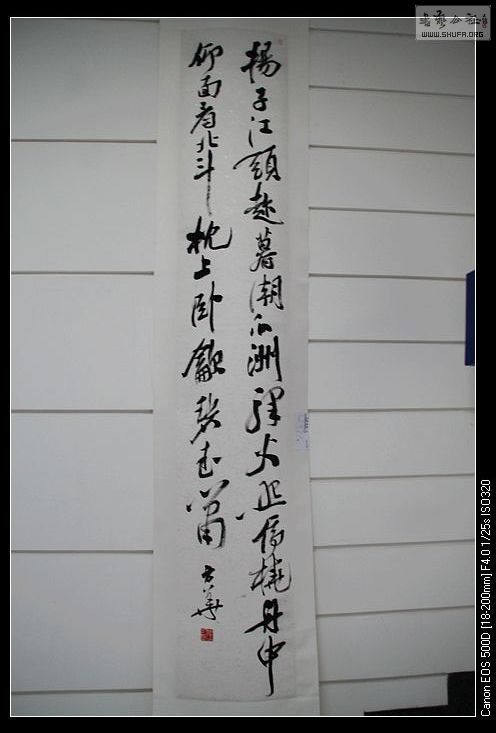 書藝公社
WWW.SHUFA.ORG
揚子江頭趁暮潮瓜洲驛火橈舟中
仰面看北斗枕上卧龡碧玉簫
Canon EOS 500D [18-200mm] F4.0 1/25s ISO320